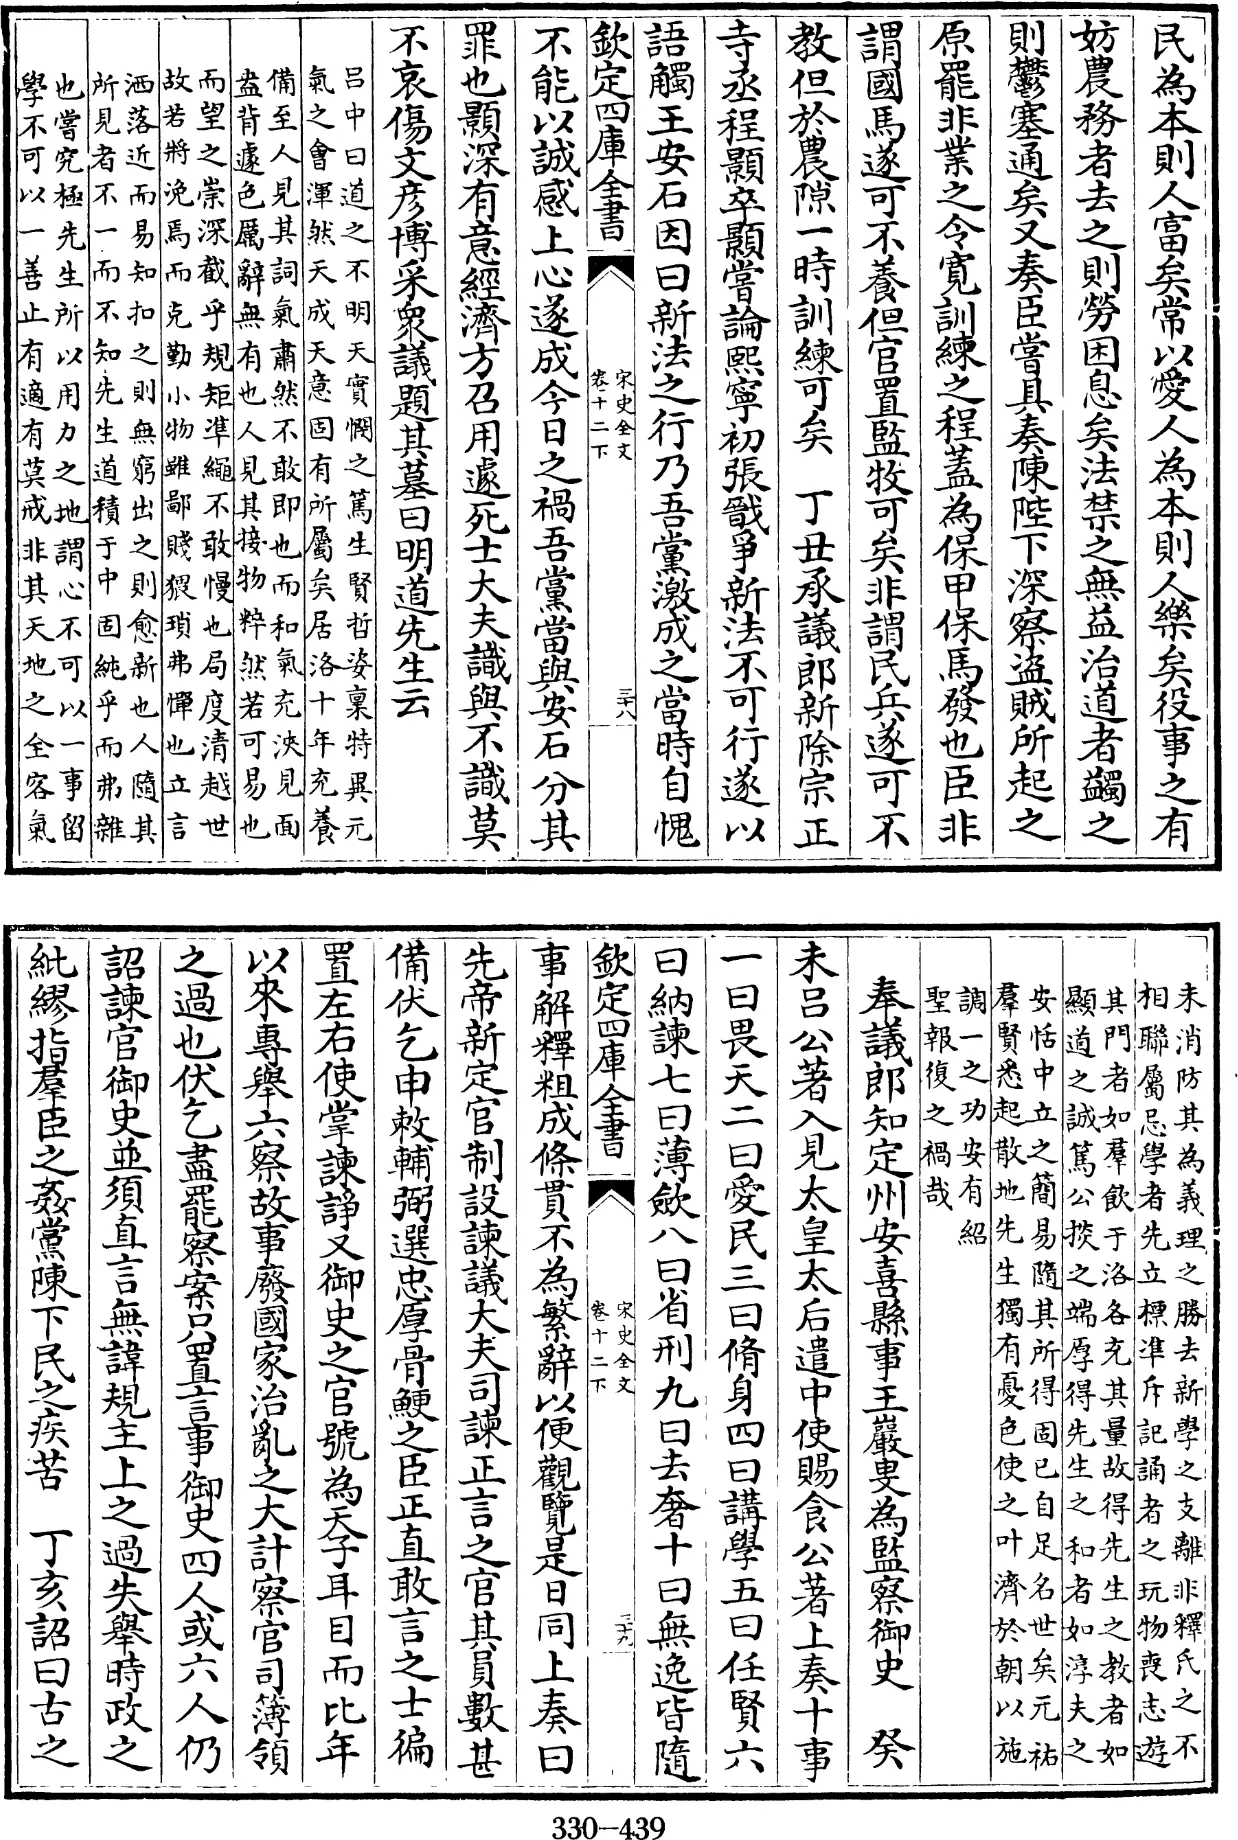 民為本則人富矣常以愛人為本則人樂矣役事之有
妨農務者去之則勞困息矣法禁之無益治道者蠲之
則鬱塞通矣又奏臣嘗具奏陳陛下深察盜賊所起之
原罷非業之令寛訓練之程蓋為保甲保馬發也臣非
謂國馬遂可不養但官置監牧可矣非謂民兵遂可不
教但於農隙一時訓練可矣　丁丑承議郎新除宗正
寺丞程顥卒顥嘗論熙寧初張戩爭新法不可行遂以
語觸王安石因曰新法之行乃吾黨激成之當時自愧
欽定四庫全書
宋史全文
卷十二下
三十八
不能以誠感上心遂成今日之禍吾黨當與安石分其
罪也顥深有意經濟方召用遽死士大夫識與不識莫
不哀傷文彥博采衆議題其墓曰明道先生云
呂中曰道之不明天實憫之篤生賢哲姿稟特異元
氣之會渾然天成天意固有所屬矣居洛十年充養
備至人見其詞氣肅然不敢即也而和氣充泱見面
盎背遽色厲辭無有也人見其接物粹然若可易也
而望之崇深截乎規矩準繩不敢慢也局度清越世
故若將浼焉而克勤小物雖鄙賤猥瑣弗憚也立言
洒落近而易知扣之則無窮出之則愈新也人隨其
所見者不一而不知先生道積于中固純乎而弗雜
也嘗究極先生所以用力之地謂心不可以一事留
學不可以一善止有適有莫戒非其天地之全客氣
未消防其為義理之勝去新學之支離非釋氏之不
相聯屬忌學者先立標準斥記誦者之玩物喪志遊
其門者如羣飲于洛各充其量故得先生之教者如
顯道之誠篤公掞之端厚得先生之和者如淳夫之
安恬中立之簡易隨其所得固已自足名世矣元祐
羣賢悉起散地先生獨有憂色使之叶濟於朝以施
調一之功安有紹
聖報復之禍哉
奉議郎知定州安喜縣事王巖叟為監察御史　癸
未呂公著入見太皇太后遣中使賜食公著上奏十事
一曰畏天二曰愛民三曰脩身四曰講學五曰任賢六
曰納諫七曰薄斂八曰省刑九曰去奢十曰無逸皆隨
欽定四庫全書
宋史全文
卷十二下
三十九
事解釋粗成條貫不為繁辭以便觀覽是日同上奏曰
先帝新定官制設諫議大夫司諫正言之官其員數甚
備伏乞申敕輔弼選忠厚骨鯁之臣正直敢言之士徧
置左右使掌諫諍又御史之官號為天子耳目而比年
以來專舉六察故事廢國家治亂之大計察官司簿領
之過也伏乞盡罷察案只置言事御史四人或六人仍
詔諫官御史並須直言無諱規主上之過失舉時政之
紕繆指羣臣之姦黨陳下民之疾苦　丁亥詔曰古之
330-439